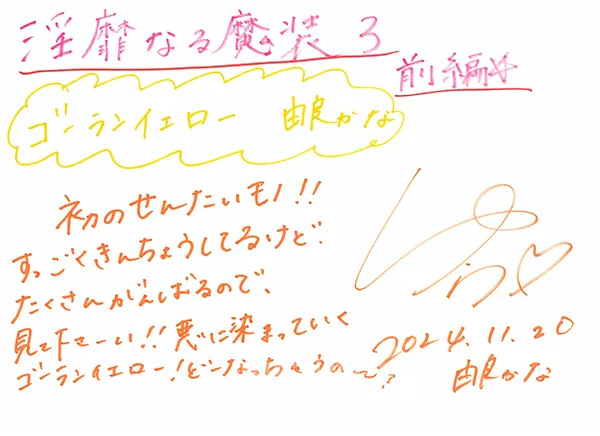 淫靡なる魔装3
前編
ゴーランイエロー 由良かな
初のせんたいモノ!!
すっごくきんちょうしてるけど、
たくさんがんばるので、
見て下さーい!!悪に染まっていく
ゴーランイエロー!どーなっちゃうの〜?
2024.11.20
由良かな